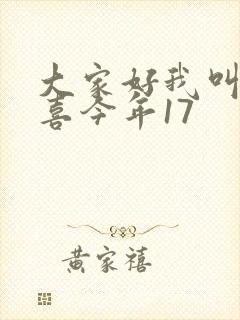 大家好我叫
喜今年17
黄家禧